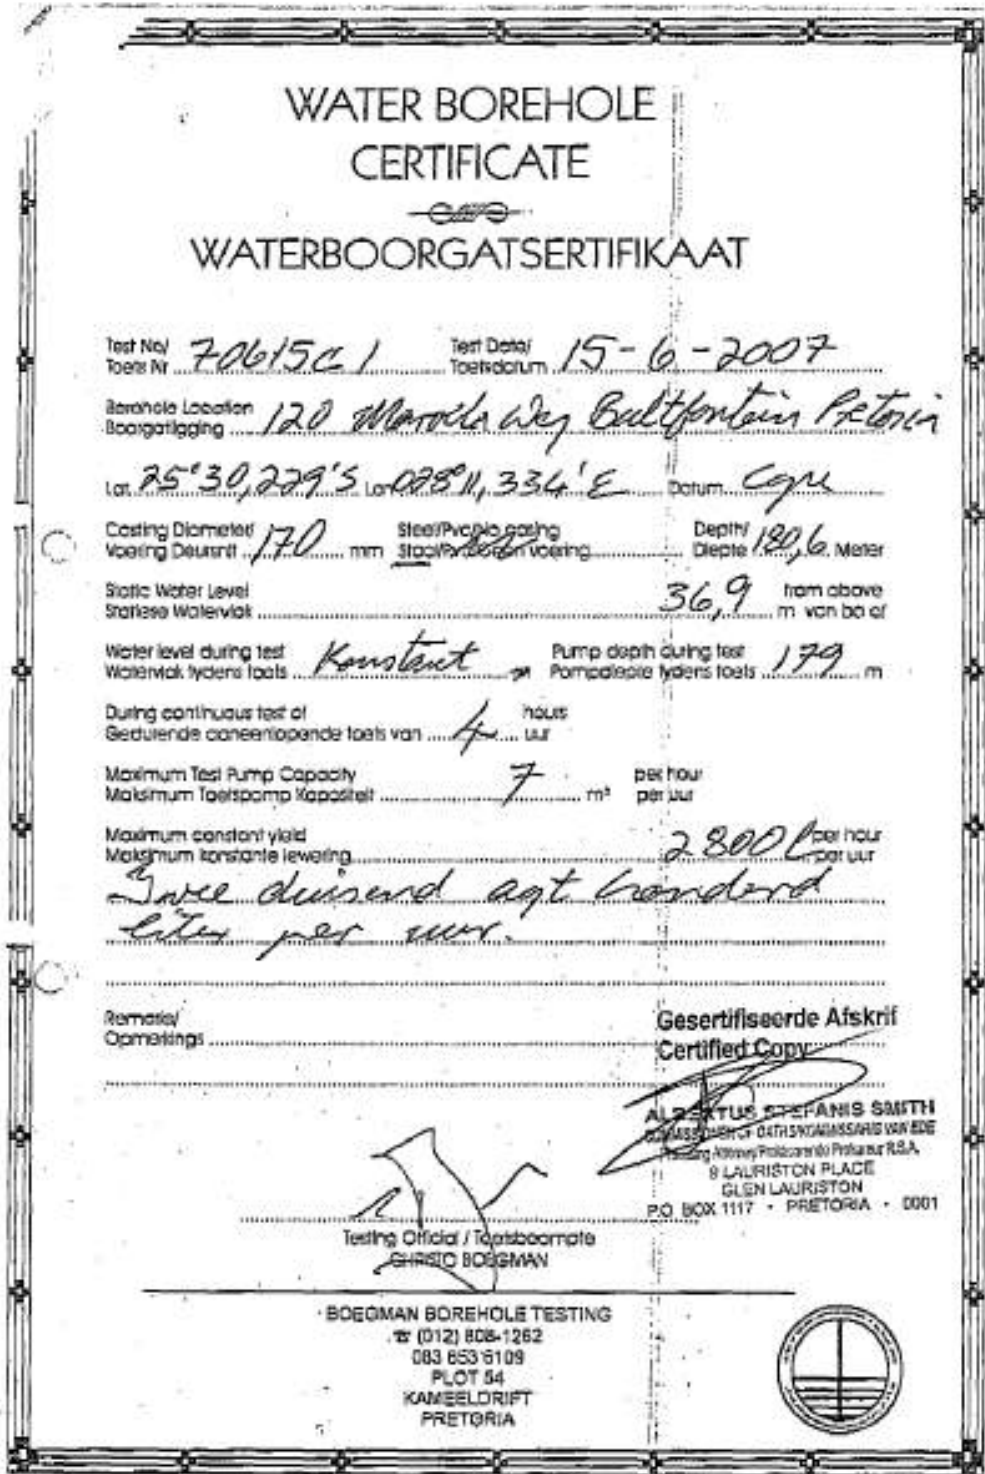 WATER BOREHOLE
CERTIFICATE
WATERBOORGATSERTIFIKAAT
Test No/ Toets Nr 70615C1 Test Date/ Toetsdatum 15-6-2007
Borehole Location
Boorgatligging 120 Way Bultfontein Pretoria
Lat 25°30,229'S Lon 028°11,334'E Datum Cape
Casting Diameter/ Steel/Pvc/no casing Depth/
Voering Deursnit 170 mm Staal/Pvc/geen voering Diepte 180,6 Meter
Static Water Level from above
Statiese Watervlak 36,9 m van bo af
Water level during test Pump depth during test
Watervlak tydens toets Konstant Pompdiepte tydens toets 179 m
During continuous test of hours
Gedurende aaneenlopende toets van 4 uur
Maximum Test Pump Capacity per hour
Maksimum Toetspomp Kapasiteit 7 m³ per uur
Maximum constant yield per hour
Maksimum konstante lewering 2800 l per uur
Twee duisend agt honderd
liter per uur.
Remarks/
Opmerkings
Gesertifiseerde Afskrif
Certified Copy
ALBERTUS STEFANIS SMITH
COMMISSIONER OF OATHS/KOMMISSARIS VAN EDE
Practising Attorney/Praktiserende Prokureur R.S.A.
9 LAURISTON PLACE
GLEN LAURISTON
P.O. BOX 1117 • PRETORIA • 0001
Testing Official / Toetsbeampte
CHRISTO BOEGMAN
BOEGMAN BOREHOLE TESTING
☎ (012) 808-1262
083 653 6109
PLOT 54
KAMEELDRIFT
PRETORIA